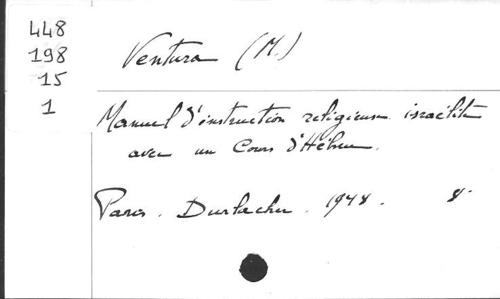 448
198
15
1
Ventura (M.)
Manuel d'instruction religieuse israélite
avec un Cours d'Hébreu.
Paris. Durlacher. 1948. 8°